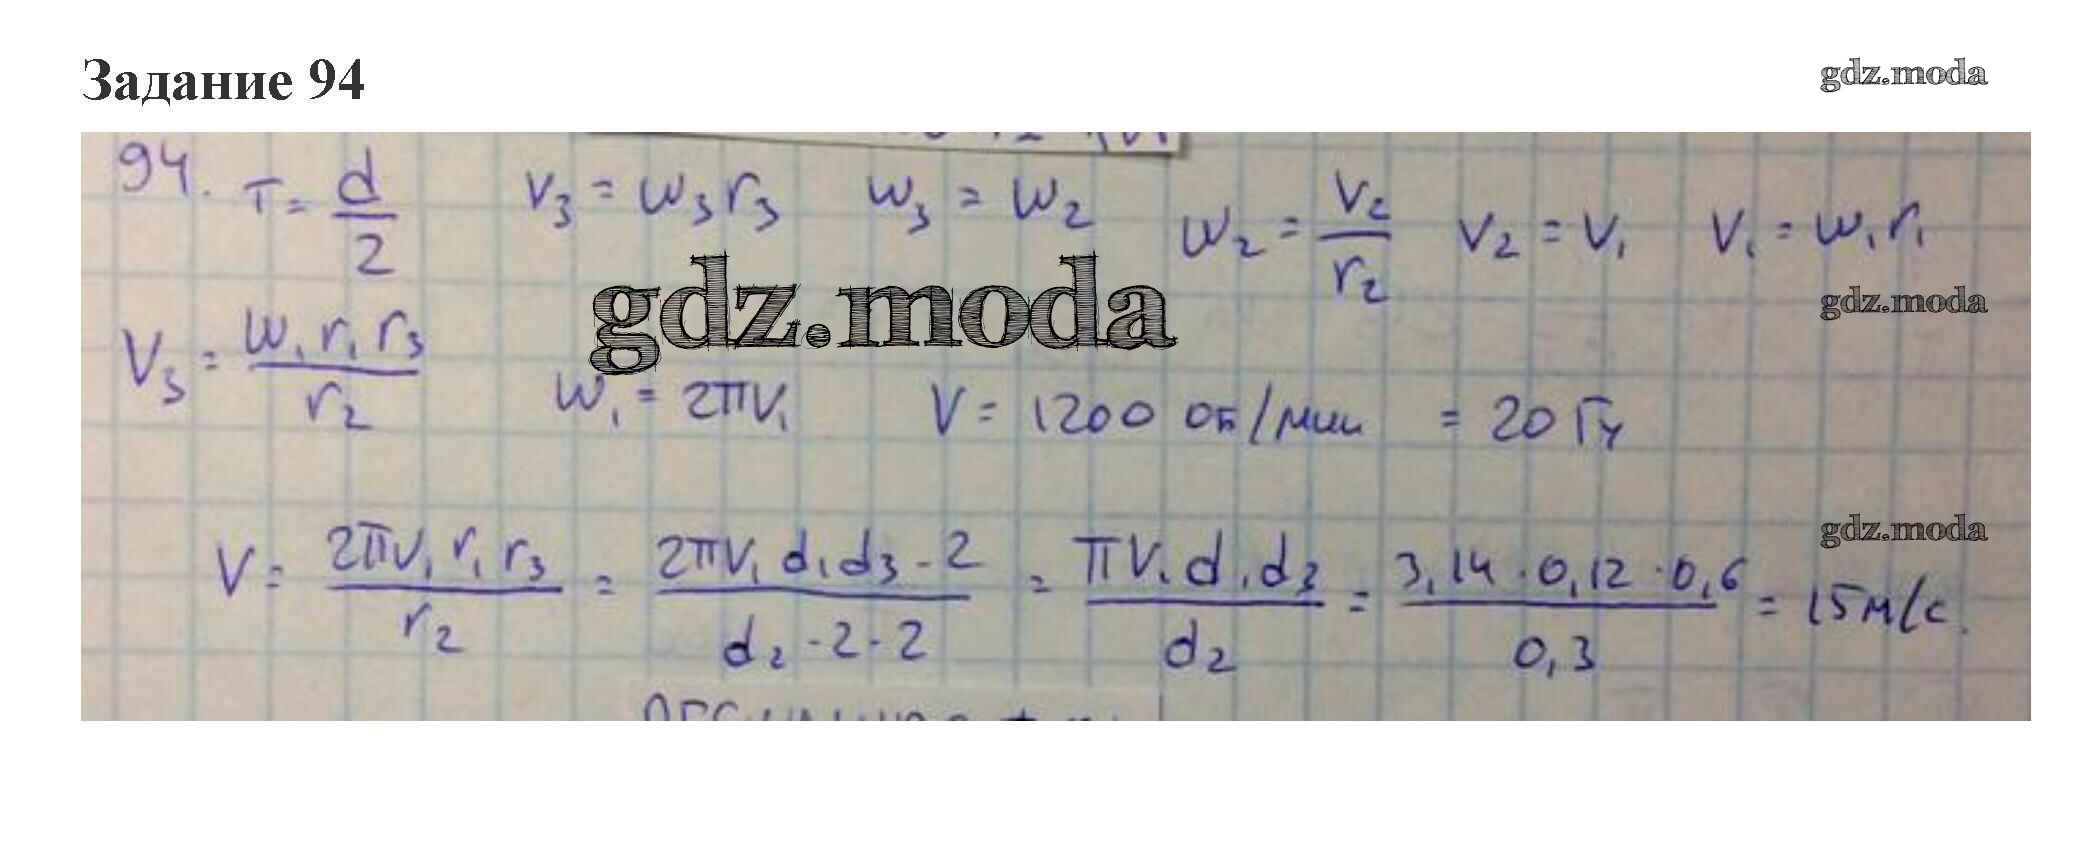 Задание 94
gdz.moda
94. T = d/2 V₃ = W₃ r₃ W₃ = W₂ W₂ = V₂/r₂ V₂ = V₁ V₁ = W₁ r₁
gdz.moda
gdz.moda
V₃ = W₁ r₁ r₃/r₂ W₁ = 2πV₁ V = 1200 об/мин = 20 Гц
gdz.moda
V = 2πV₁ r₁ r₃/r₂ = 2πV₁ d₁ d₃ · 2/d₂ · 2 · 2 = πV₁ d₁ d₃/d₂ = 3,14 · 0,12 · 0,6/0,3 = 15 м/с.